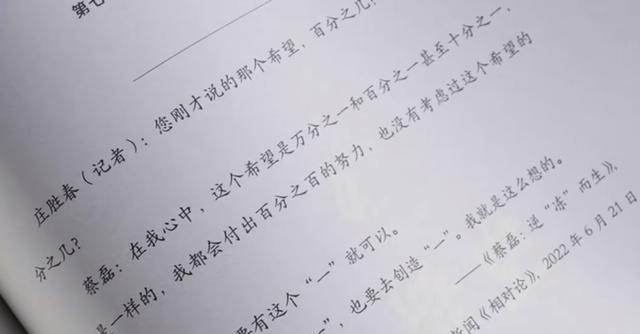 第七
庄胜春（记者）：您刚才说的那个希望，百分之几？
分之几？
蔡磊：在我心中，这个希望是万分之一和百分之一甚至十分之一，
是一样的，我都会付出百分之百的努力，也没有考虑过这个希望的
要有这个“一”就可以。
”，也要去创造“一”。我就是这么想的。
——《蔡磊：逆“冻”而生》，
闻《相对论》，2022年6月21日